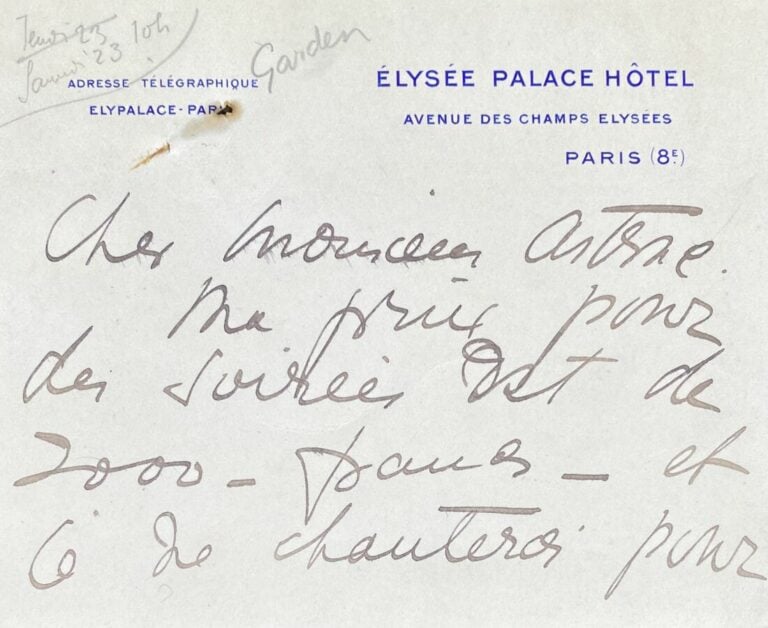 10h
Garden
ADRESSE TÉLÉGRAPHIQUE
ELYPALACE-PARIS
ÉLYSÉE PALACE HÔTEL
AVENUE DES CHAMPS ELYSÉES
PARIS (8E.)
Cher Monsieur Astruc.
Ma prix pour
des soirées est de
2000 - francs - et
je chanterai pour